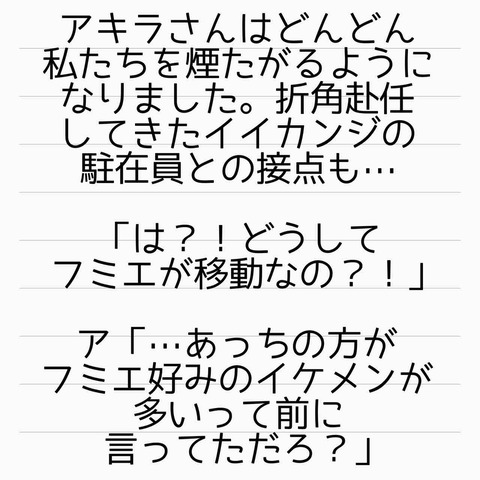 アキラさんはどんどん
私たちを煙たがるように
なりました。折角赴任
してきたイイカンジの
駐在員との接点も…
「は？！どうして
フミエが移動なの？！」
ア「…あっちの方が
フミエ好みのイケメンが
多いって前に
言ってただろ？」